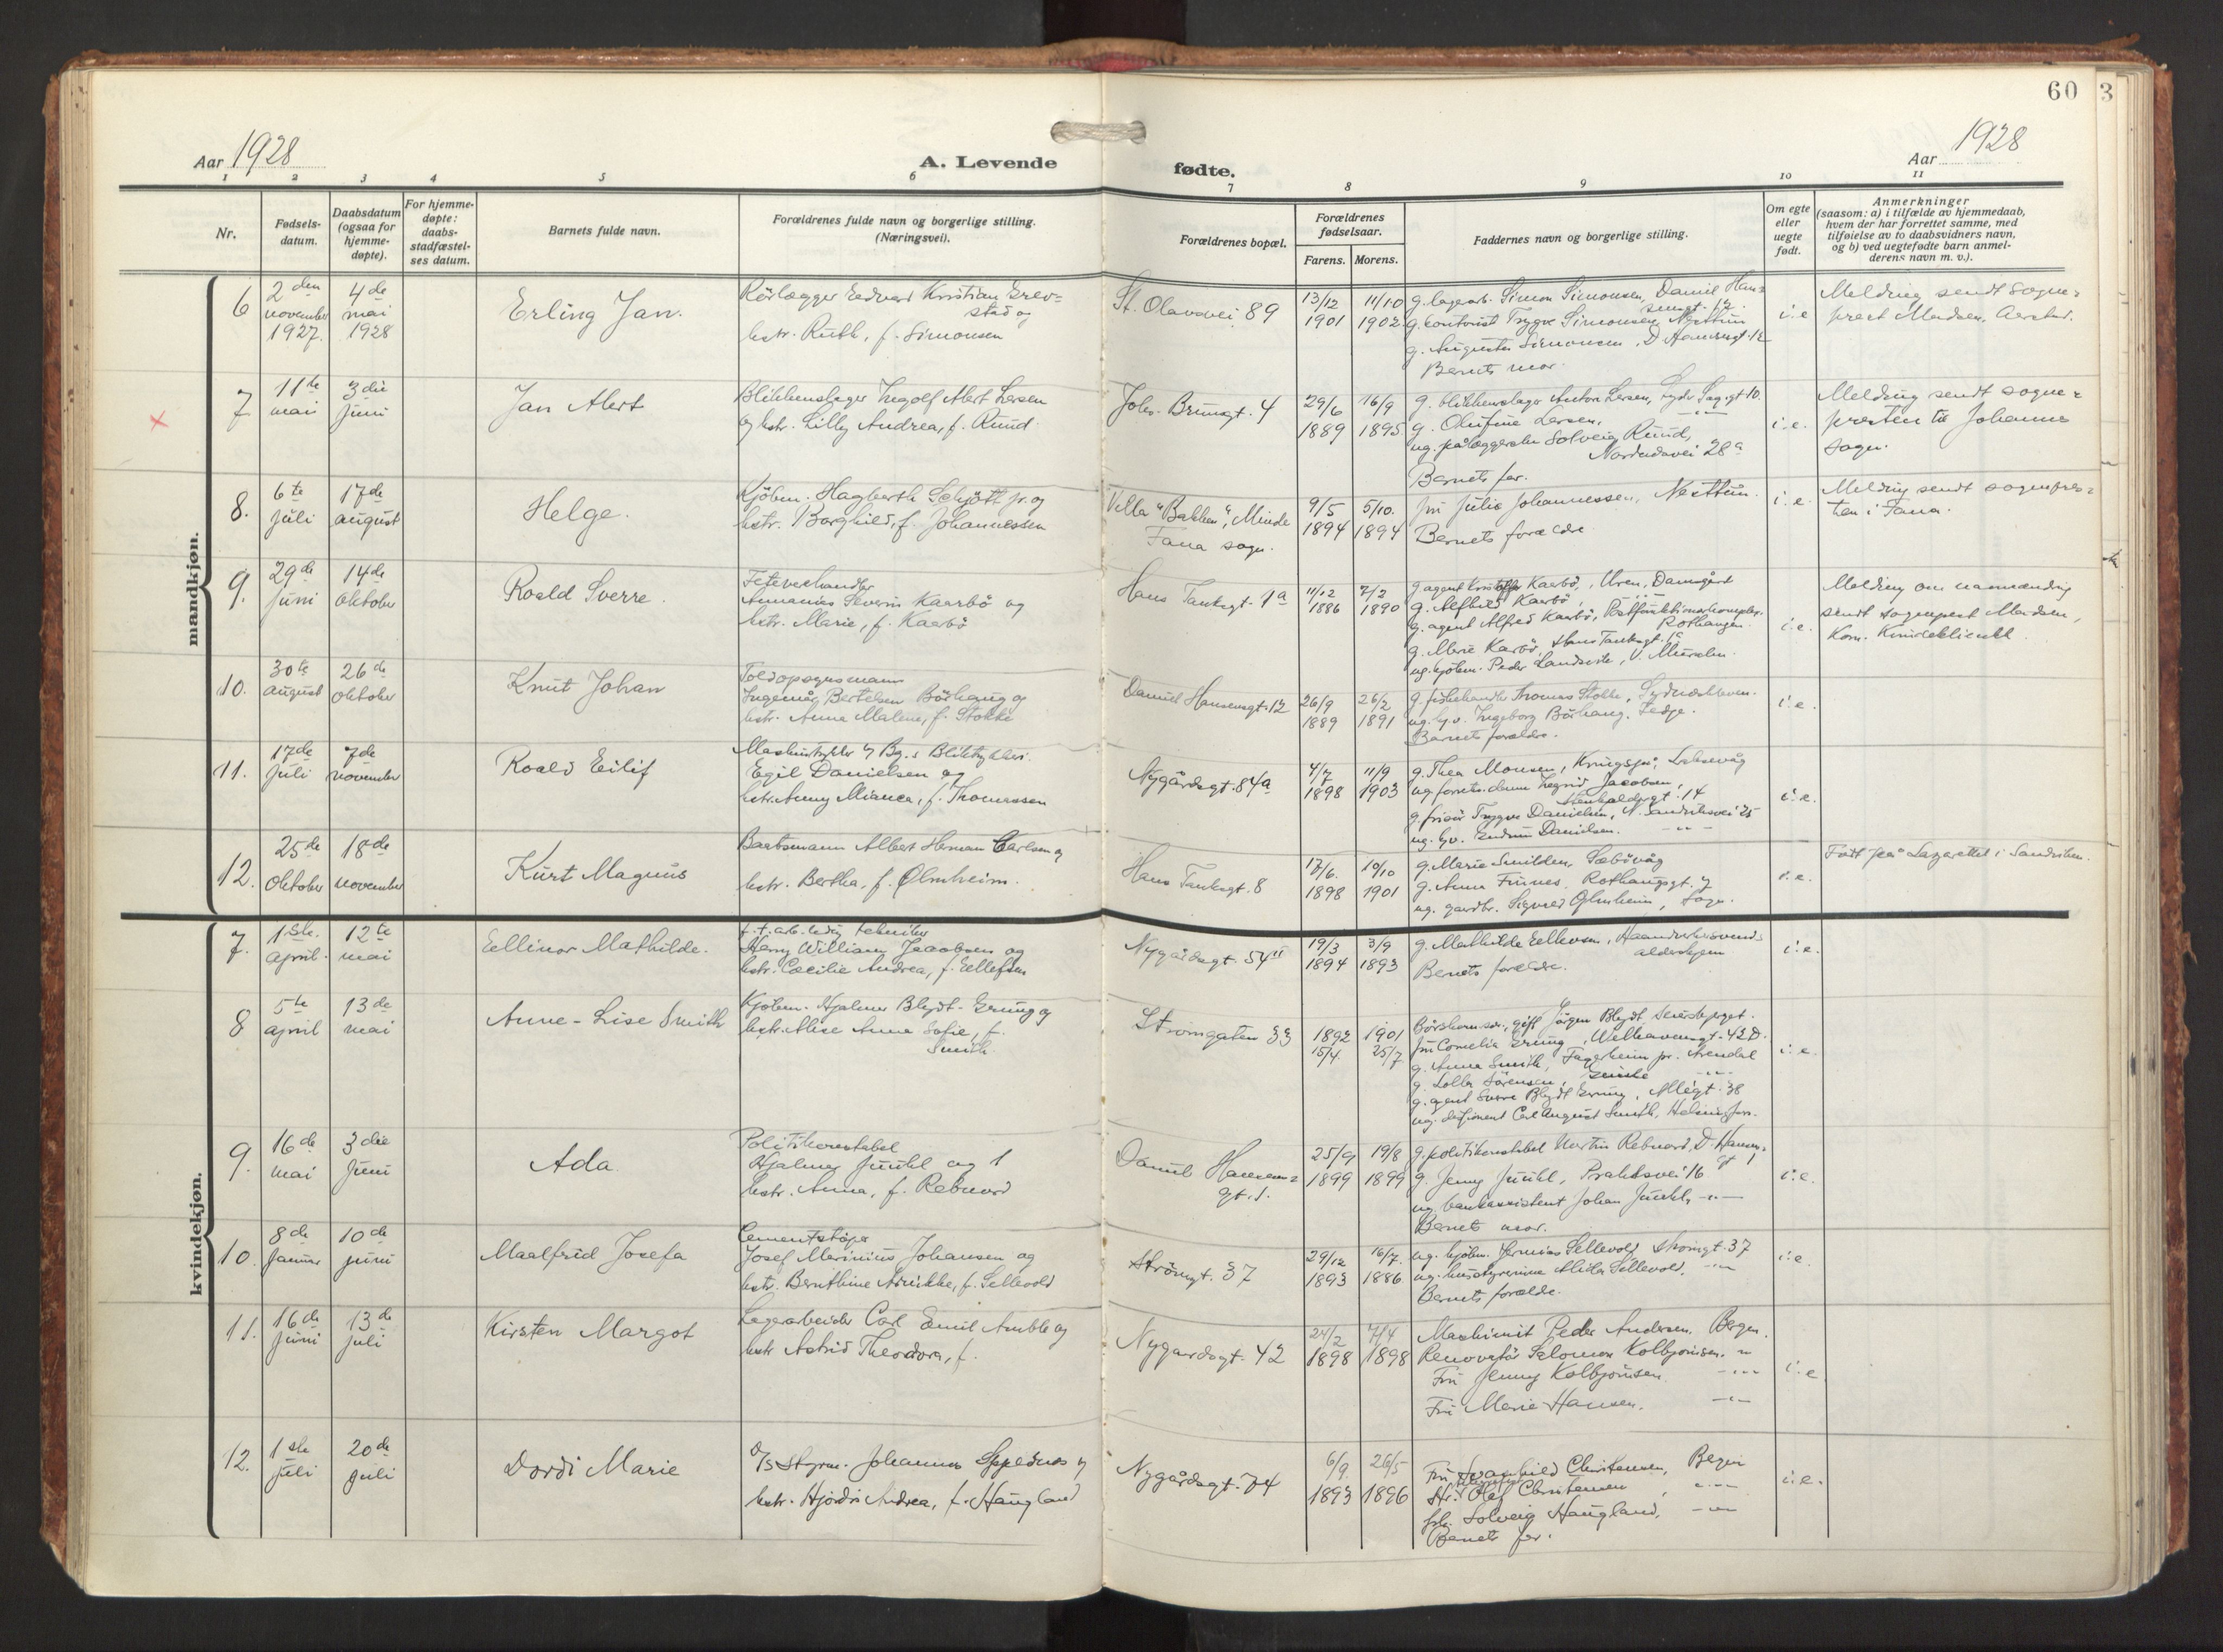 60
3
Aar 1928
A. Levende
fødte.
Aar 1928
1 2 3 4 5 6 7 8 9 10 11
Nr.
Fødsels-
datum.
Daabsdatum
(ogsaa for
hjemme-
døpte).
For hjemme-
døpte:
daabs-
stadfæstel-
ses datum.
Barnets fulde navn.
Forældrenes fulde navn og borgerlige stilling.
(Næringsvei).
Forældrenes bopæl.
Forældrenes
fødselsaar.
Farens. Morens.
Faddernes navn og borgerlige stilling.
Om egte
eller
uegte
født.
Anmerkninger
(saasom: a) i tilfælde av hjemmedaab,
hvem der har forrettet samme, med
tilføielse av to daabsvidners navn,
og b) ved uegtefødte barn anmel-
derens navn m. v.).
mandkjøn.
6
2den
november
1927.
4de
mai
1928
Erling Jan.
Rörlægger Edvard Kristian Grev-
stad og
hstr. Ruth, f. Simonsen
St. Olavsvei 89
13/12
1901
11/10
1902
g. lagerarb. Simon Simonsen, Daniel Han-
sensgt. 12
g. kontorist Trygve Simonsen, Nesttun
g. Augusta Simonsen, D. Hansensgt. 12
Barnets mor.
i. e
Meldring sendt sogne-
prest Madsen,
7
11te
mai
3die
juni
Jan Alert
Blikkenslager Ingolf Alert Larsen
og hstr. Lilly Andrea, f. Rund.
Johs. Brunsgt. 4
29/6
1889
16/9
1895
g. blikkenslager Anton Larsen, Lyder Sagsgt 10.
g. Olufine Larsen, -"-
ug. pålæggerske Solveig Rund,
Nordnæsvei 28a
Barnets far.
i. e.
Meldring sendt sogne-
presten til Johannes
sogn.
8.
6te
juli
17de
august
Helge.
Kjöbm. Hagbarth Schjött jr. og
hstr. Borghild, f. Johannessen
Villa "Bakken", Minde
Fana sogn.
9/5
1894
5/10.
1894
fru Julie Johannessen, Nesttun.
Barnets forældre
i. e.
Meldring sendt sognepres-
ten i Fana.
9.
29de
juni
14de
oktober
Roald Sverre.
Fetevarehandler
Annanias Severin Kaarbö og
hstr. Marie, f. Kaarbö
Hans Tanksgt. 1a
11/12
1886
7/2
1890
g. agent Kristoffer Kaarbö, Uren, Damsgård
g. Alfhild Kaarbö, -"-
g. agent Alfred Kaarbö, Postfunktionærkompleks.
Rothaugen.
g. Marie Kaarbö, Hans Tanksgt. 1a
ug. kjöbm. Peder Landsvik, V. Muralm.
i. e.
Meldring om navneændring
sendt sogneprest Madsen,
10.
30te
august
26de
oktober
Knut Johan
Toldopsynsmann
Ingemår Bertelsen Börhaug og
hstr. Anna Malene, f. Stokke
Daniel Hansensgt. 12
26/9
1889
26/2
1891
g. fiskehandler Thomas Stokke, Sydnæskleven.
ug. hjv. Ingeborg Börhaug, Fedje.
Barnets forældre.
i. e.
11.
17de
juli
7de
november
Roald Eilif
Egil Danielsen og
hstr. Anny Mianca, f. Thomassen
Nygårdsgt. 84a
4/7
1898
11/9
1903
g. Thea Monsen, Kringsjå, Laksevåg
ug. forretn. dame Ingrid Jacobsen,
14
g. frisör Trygve Danielsen, N. Sandviksvei 25
ug. hjv. Gudrun Danielsen. -"-
i. e.
12.
25de
oktober
18de
november
Kurt Magnus
Baatsmann Albert Herman Carlsen og
hstr. Bertha, f. Ølmheim.
Hans Tanksgt. 8
13/6.
1898
10/10
1901
g. Marie Smilden, Sæbövåg
g. Anna Finnes. Rothaugsgt. 7
ug. gaardbr. Sigurd Ølmheim, Sogn.
i. e.
Født på Lazarettet i Sandviken.
kvindekjøn.
7.
1ste
april.
12te
mai
Eellinor Mathilde.
f. t. arb. ledig tekniker
Harry William Jacobsen og
hstr. Cæcilie Andrea, f. Eellefsen
Nygårdsgt. 54II
19/3
1894
3/9
1893
g. Mathilde Eellevsen, Haandverkersvend-
alderhjem
Barnets forældre.
i. e.
8
5te
april
13de
mai
Anne-Lise Smith
Kjöbm. Hjalmar Blydt-Grung og
hstr. Alise Anna Sofie, f.
Smith.
Strömgaten 33
1892
15/4.
1901
25/7
Börskomisær, gift Jörgen Blydt
fru Cornelia Grung, Welhavensgt. 43D.
g. Anna Smith, Fagerheim pr. Arendal
g. Lolla Sörensen,
g. agent Sverre Blydt Grung, Allégt. 38
ug. disponent Carl August Smith, Helsingfors.
i. e.
9.
16de
mai
3die
Juni
Ada
Politikonstabel
Hjalmar Juuhl og
hstr. Anna, f. Rebnord
Daniel Hansens-
gt. 1.
25/9
1899
19/8
1899
g. politikonstabel Martin Rebnord, D. Hansens-
gt 1
g. Jenny Juuhl, Prahlsvei 16
ug. bankassistent Johan Juuhl, -"-
Barnets mor.
i. e.
10.
8de
januar
10de
juni
Maalfrid Josefa
Cementstöper
Josef Marinius Johansen og
hstr. Bernthine Arnikke, f. Sellevold
Strömgt. 37
29/12
1893
16/7.
1886
ug. kjöbm. Jermias Sellevold Strömgt. 37
ug. husstyrerinne Alida Sellevold. -"-
Barnets forældre.
i. e.
11.
16de
juni
13de
juli
Kirsten Margot
Lagerarbeider Carl Emil Amble og
hstr Astrid Theodora, f.
Nygaardsgt. 42
24/2
1898
7/4
1898
Maskinist Peder Andersen. Bergen.
Renovatör Salomon Kolbjørnsen. "
Fru Jenny Kolbjørnsen. -"-
Fru Marie Hansen. -"-
i. e
12.
1ste
juli
20de
juli
Dordi Marie
D/S Styrm. Johannes Eppednes og
hstr. Hjördis Andrea, f. Haugland
Nygårdsgt. 74
6/9.
1893
26/5
1896
Fru Svanhild Christensen, Bergen
Hr. Olaf Christensen, -"-
frk. Solveig Haugland, -"-
Barnets far.
i. e.